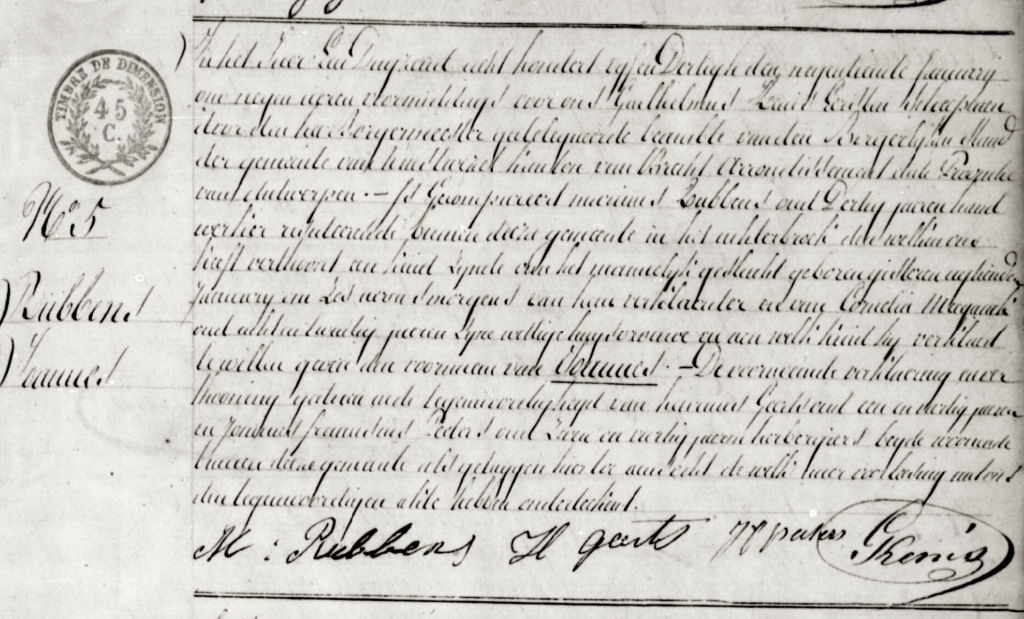 TIMBRE DE DIMENSION
45
C.
No 5
Rubbens
Joannes
In het Jaer Een Duyzend acht hondert vyf en Dertigh den negentiende January
om negen uren voormiddags voor ons Guilhelmus Kenis Eersten Scheepenen
door den heer Borgermeester gedelegueerde beambte van den Borgerlyken Stand
der gemeente van canton van Brecht arrondissement ende Provincie
van Antwerpen. — Is Gecompareert marinus Rubbens oud Dertig jaeren hand
werker resideerende binnen deeze gemeente in het achterbroek den welken ons
heeft verthoont een kind zynde van het mannelyk geslacht geboren gisteren agthienden
January om zes uren smorgens van hem verklaerder en van Cornelia
oud achtentwintig jaeren zyne wettige huysvrouwe en aen welk kind hy verklaert
te willen geven den voornaem van Joannes. — De voornoemde verklaering en ver
thooning gedaen ende tegenwoordigheyd van Geerts oud een en dertig jaeren
en Joannes franciscus Peeters oud zeven en veertig jaeren herbergiers beyde woonende
binnen deeze gemeente als getuygen hier toe aensocht de welke naer voorlesing met ons
den tegenwoordigen akte hebben onderteekent.
M : Rubbens H geerts JF peeters GKenis